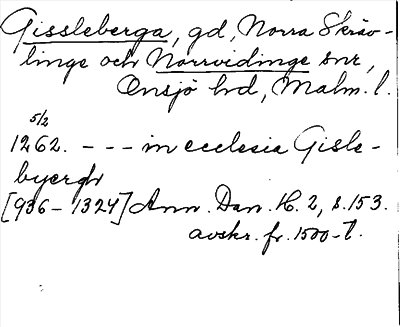 Gissleberga, gd, Norra Skräv-
linge och Norrvidinge snr,
Onsjö hd, Malm. l.
5/2
1262. - - - in ecclesia Gisle-
byergh
[936 - 1324] Ann. Dan. H. 2, s. 153.
avskr. fr. 1500-t.